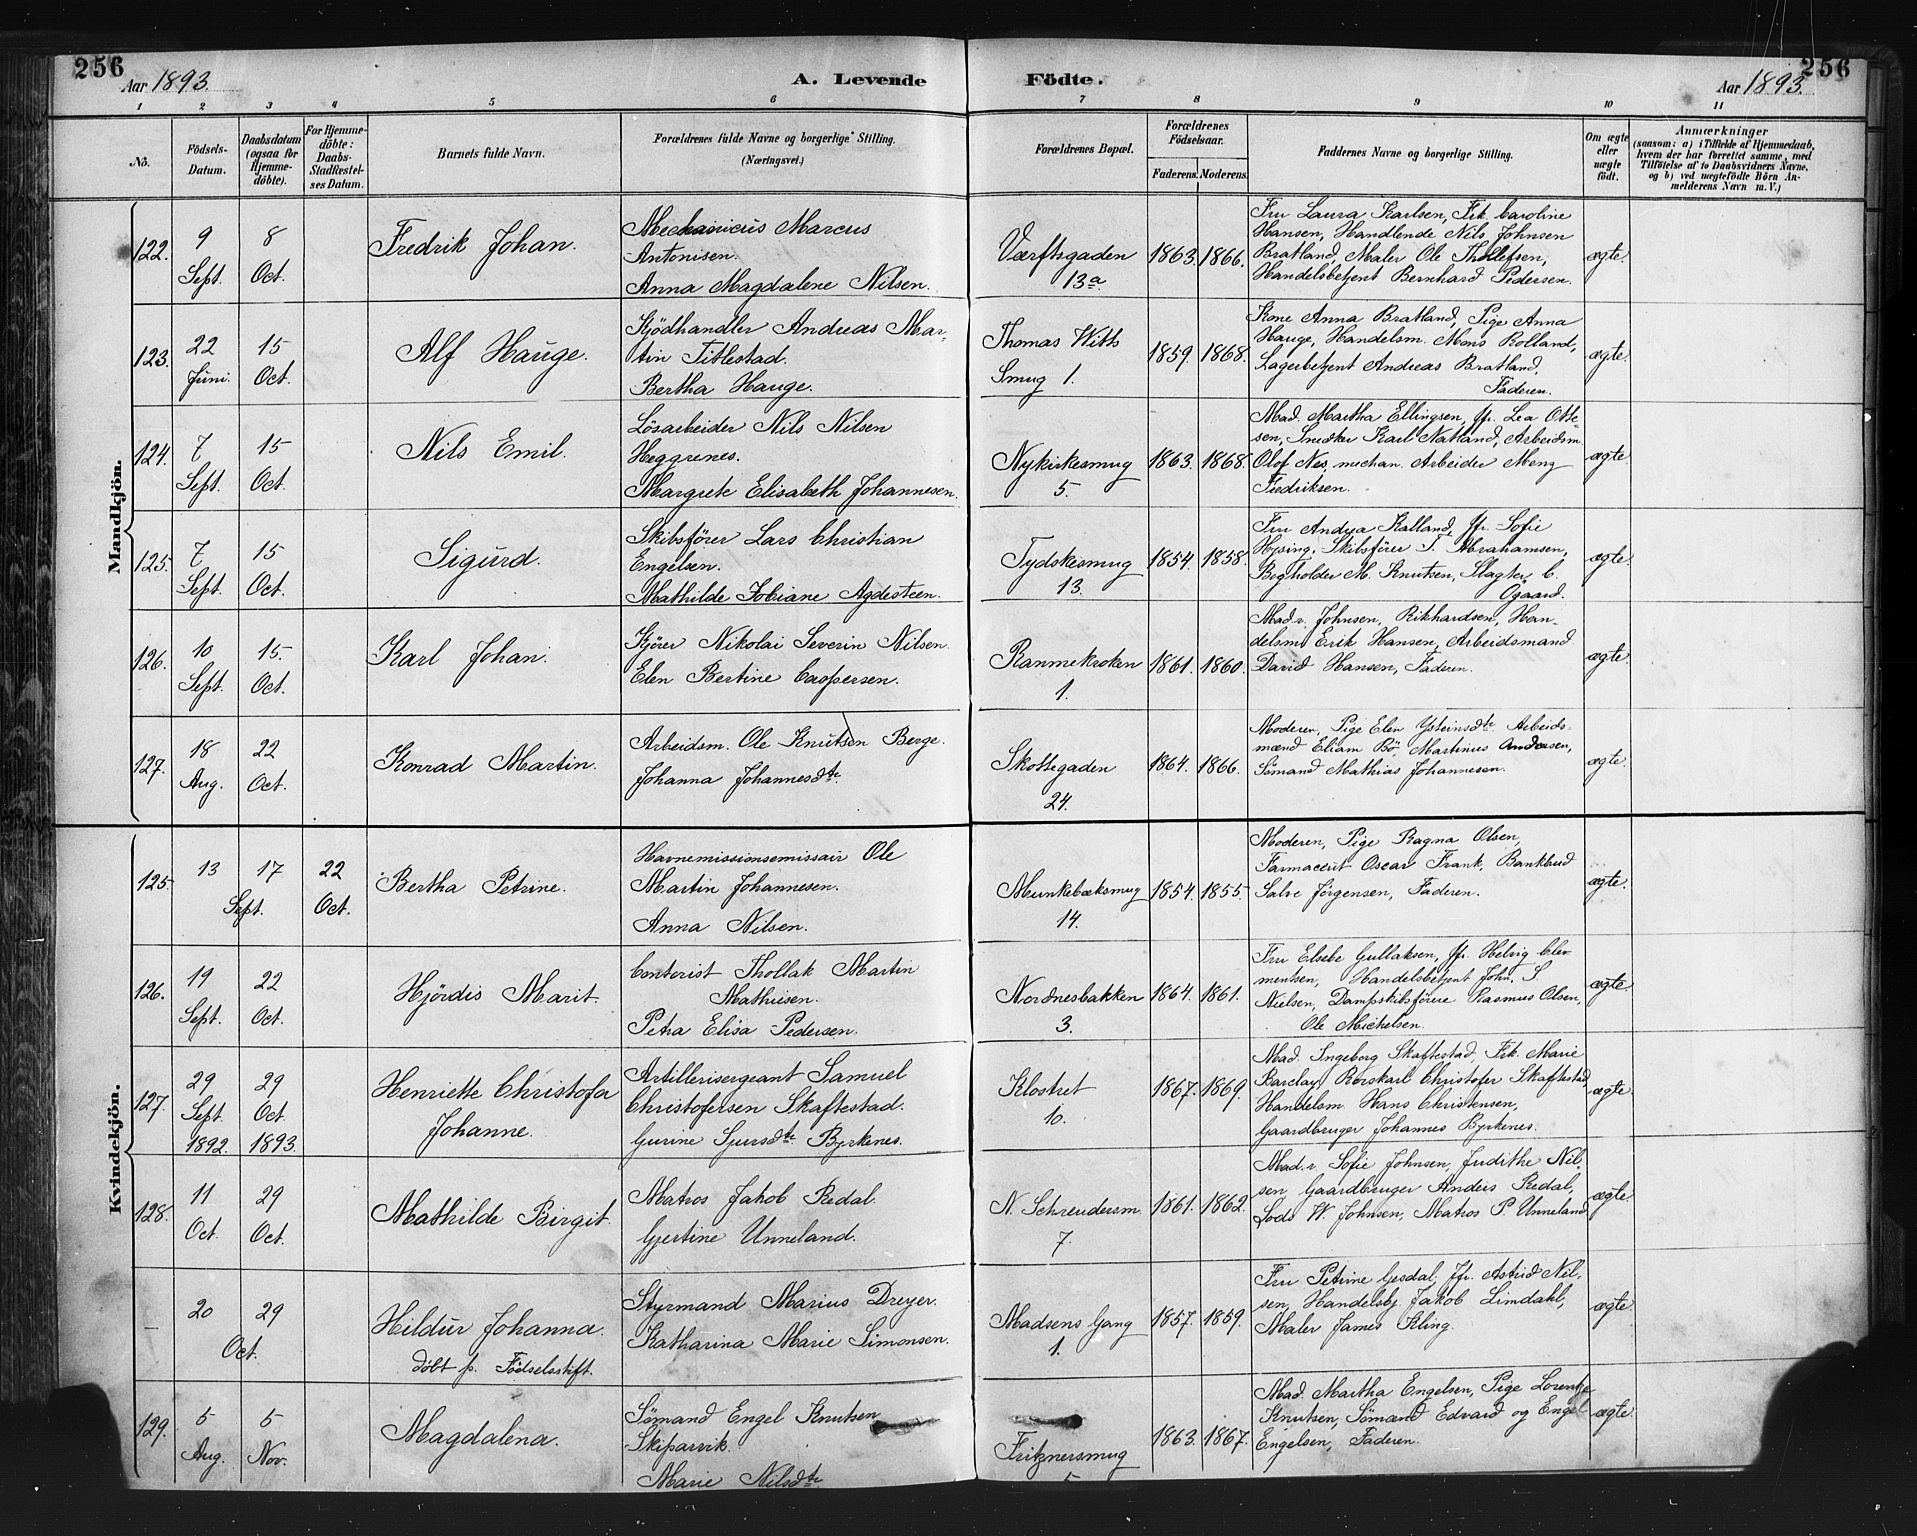 256
Aar 1893.
A. Levende Födte.
Aar 1893.
256
1 2 3 4 5 6 7 8 9 10 11
No.
Födsels-Datum.
Daabsdatum (ogsaa for Hjemme-döbte).
For Hjemme-döbte: Daabs-Stadfæstel-ses Datum.
Barnets fulde Navn.
Forældrenes fulde Navne og borgerlige Stilling.
(Næringsvei.)
Forældrenes Bopæl.
Forældrenes Födselsaar.
Faderens. Moderens.
Faddernes Navne og borgerlig Stilling.
Om ægte eller uægte födt.
Anmærkninger
(saasom: a) i Tilfælde af Hjemmedaab,
hvem der har forrettet samme, med
Tilföielse af to Daabsvidners Navne,
og b) ved uægtefödte Börn An-
melderens Navn m. V.)
Mandkjön.
122.
9 Sept.
8 Oct.
Fredrik Johan.
Mechanicus Marcus
Antonisen.
Anna Magdalene Nilsen.
Værftsgaden
13a.
1863. 1866.
Fru Laura Karlsen, Frk. Caroline
Hansen, Handlende Nils Johnsen
Bratland, Maler Ole Thollefsen,
Handelsbetjent Bernhard Pedersen.
ægte.
123.
22 Juni.
15 Oct.
Alf Hauge.
Kjödhandler Andreas Mar-
tin Titlestad.
Bertha Hauge.
Thomas Witts
Smug 1.
1859. 1868.
Kone Anna Bratland, Pige Anna
Hauge, Handelsm. Mons Rolland,
Lagerbetjent Andreas Bratland,
Faderen.
ægte.
124.
7 Sept.
15 Oct.
Nils Emil.
Lösarbeider Nils Nilsen
Heggrenes.
Margrete Elisabeth Johannesen.
Nykirkesmug
5.
1863. 1868.
Mad. Martha Ellingsen, Jfr. Lea Otte-
sen, Snedker Karl Natland, Arbeidsm.
Olof Nes, mechan. Arbeider Meng
Fredriksen.
ægte.
125.
7 Sept.
15 Oct.
Sigurd.
Skibsförer Lars Christian
Engelsen.
Mathilde Tobiane Agdesteen.
Tydskesmug
13.
1854. 1858.
Fru Andya Kalland, Jfr. Sofie
Hysing, Skibsförer T. Abrahamsen,
Bogholder M. Knutsen, Slagter C.
Ögaard.
ægte.
126.
10 Sept.
15. Oct.
Karl Johan.
Kjörer Nikolai Severin Nilsen.
Elen Bertine Caspersen.
Rammekroken
1.
1861. 1860.
Mad.r. Johnsen, Rikhardsen, Han-
delsm. Erik Hansen, Arbeidsmand
David Hansen, Faderen.
ægte.
127.
18 Aug.
22 Oct.
Konrad Martin.
Arbeidsm. Ole Knutsen Berge.
Johanna Johannesdtr.
Skottegaden
24.
1864. 1866.
Moderen, Pige Elen Ysteinsdtr. Arbeids-
mænd Eliam Bö, Martinus Andersen,
Sömand Mathias Johannesen.
ægte.
Kvindekjön.
125.
13 17
Sept.
22 Oct.
Bertha Petrine.
Havnemissionsemissair Ole
Martin Johannesen.
Anna Nilsen.
Munkebæksmug
14.
1854. 1855.
Moderen, Pige Ragna Olsen,
Farmaceut Oscar Frank, Bankbud
Salve Jörgensen, Faderen.
ægte.
126.
19 Sept.
22 Oct.
Hjördis Marit.
Contorist Thollak Martin
Mathiesen.
Petra Elisa Pedersen.
Nordnesbakken
3.
1864. 1861.
Fru Elsebe Gullaksen, Jfr. Helvig Cle-
mentsen, Handelsbetjent John. S.
Nielsen, Dampskibsförere Rasmus Olsen,
Ole Michelsen.
ægte.
127.
29 Sept. 1892.
29 Oct. 1893.
Henriette Christofa
Johanne.
Artillerisergeant Samuel
Christofersen Skaftestad.
Gurine Sjursdtr Byrkenes.
Klostret
10.
1867. 1869.
Mad. Ingeborg Skaftestad, Frk. Marie
Barclay, Rorskarl Christofer Skaftestad,
Handelsm. Hans Christensen,
Gaardbruger Johannes Byrkenes.
ægte.
128.
11 Oct.
29 Oct.
Mathilde Birgit.
Matros Jakob Redal.
Gjertine Unneland.
N. Schreudersm.
7.
1861. 1862.
Mad.r. Sofie Johnsen, Judithe Nil-
sen, Gaardbruger Anders Redal,
Lods W. Johnsen, Matros P. Unneland
ægte.
20 29
Oct.
Hildur Johanna.
döbt p. Födselsstift.
Styrmand Marius Dreyer.
Katharina Marie Simonsen.
Madsens Gang
1.
1857. 1859.
Fru Petrine Gesdal, Jfr. Astrid Nil-
sen, Handelsbj. Jakob Limdahl,
Maler James Kling.
ægte.
129.
5 Aug.
5 Nov.
Magdalena.
Sömand Engel Knutsen
Skiparvik.
Marie Nilsdtr
Fritznersmug
5
1863. 1867.
Mad. Martha Engelsen, Pige Lorentze
Knutsen, Sömænd Edvard og Engel
Engelsen, Faderen.
ægte.